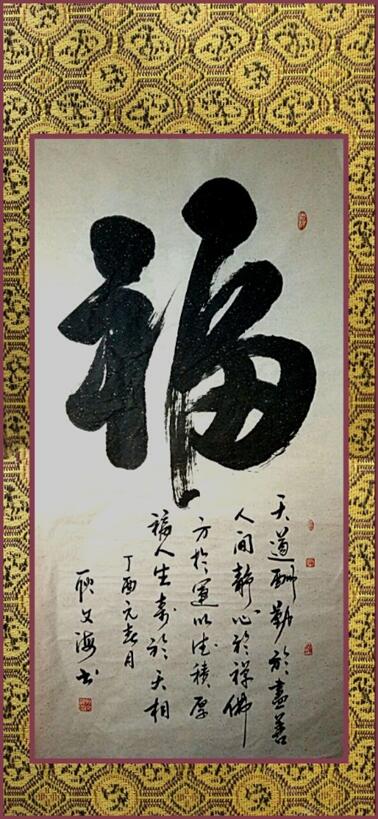 福
天道酬勤於善
人间静心於禅佛
方於運以德積厚
福人生寿於天相
丁酉元春月
耿文海书